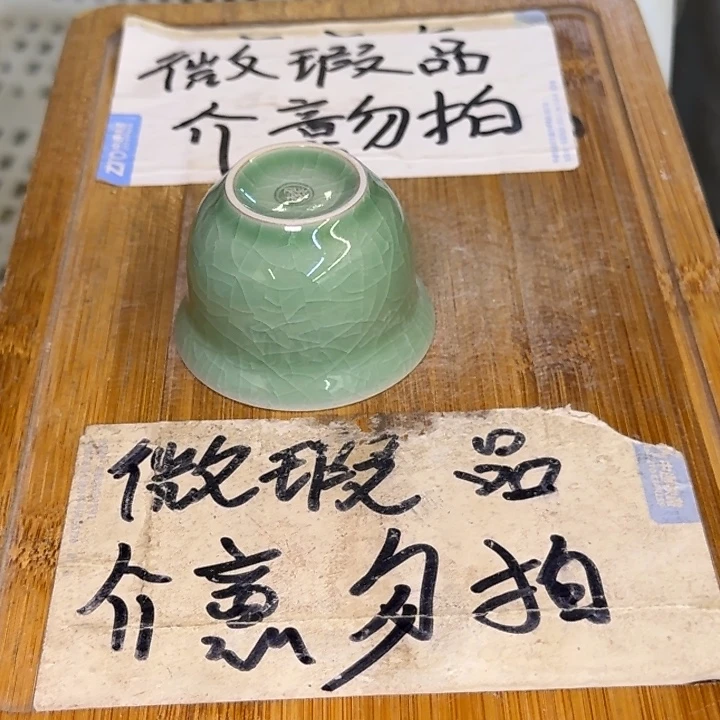 微瑕品
介意勿拍
ZTO
微瑕品
介意勿拍